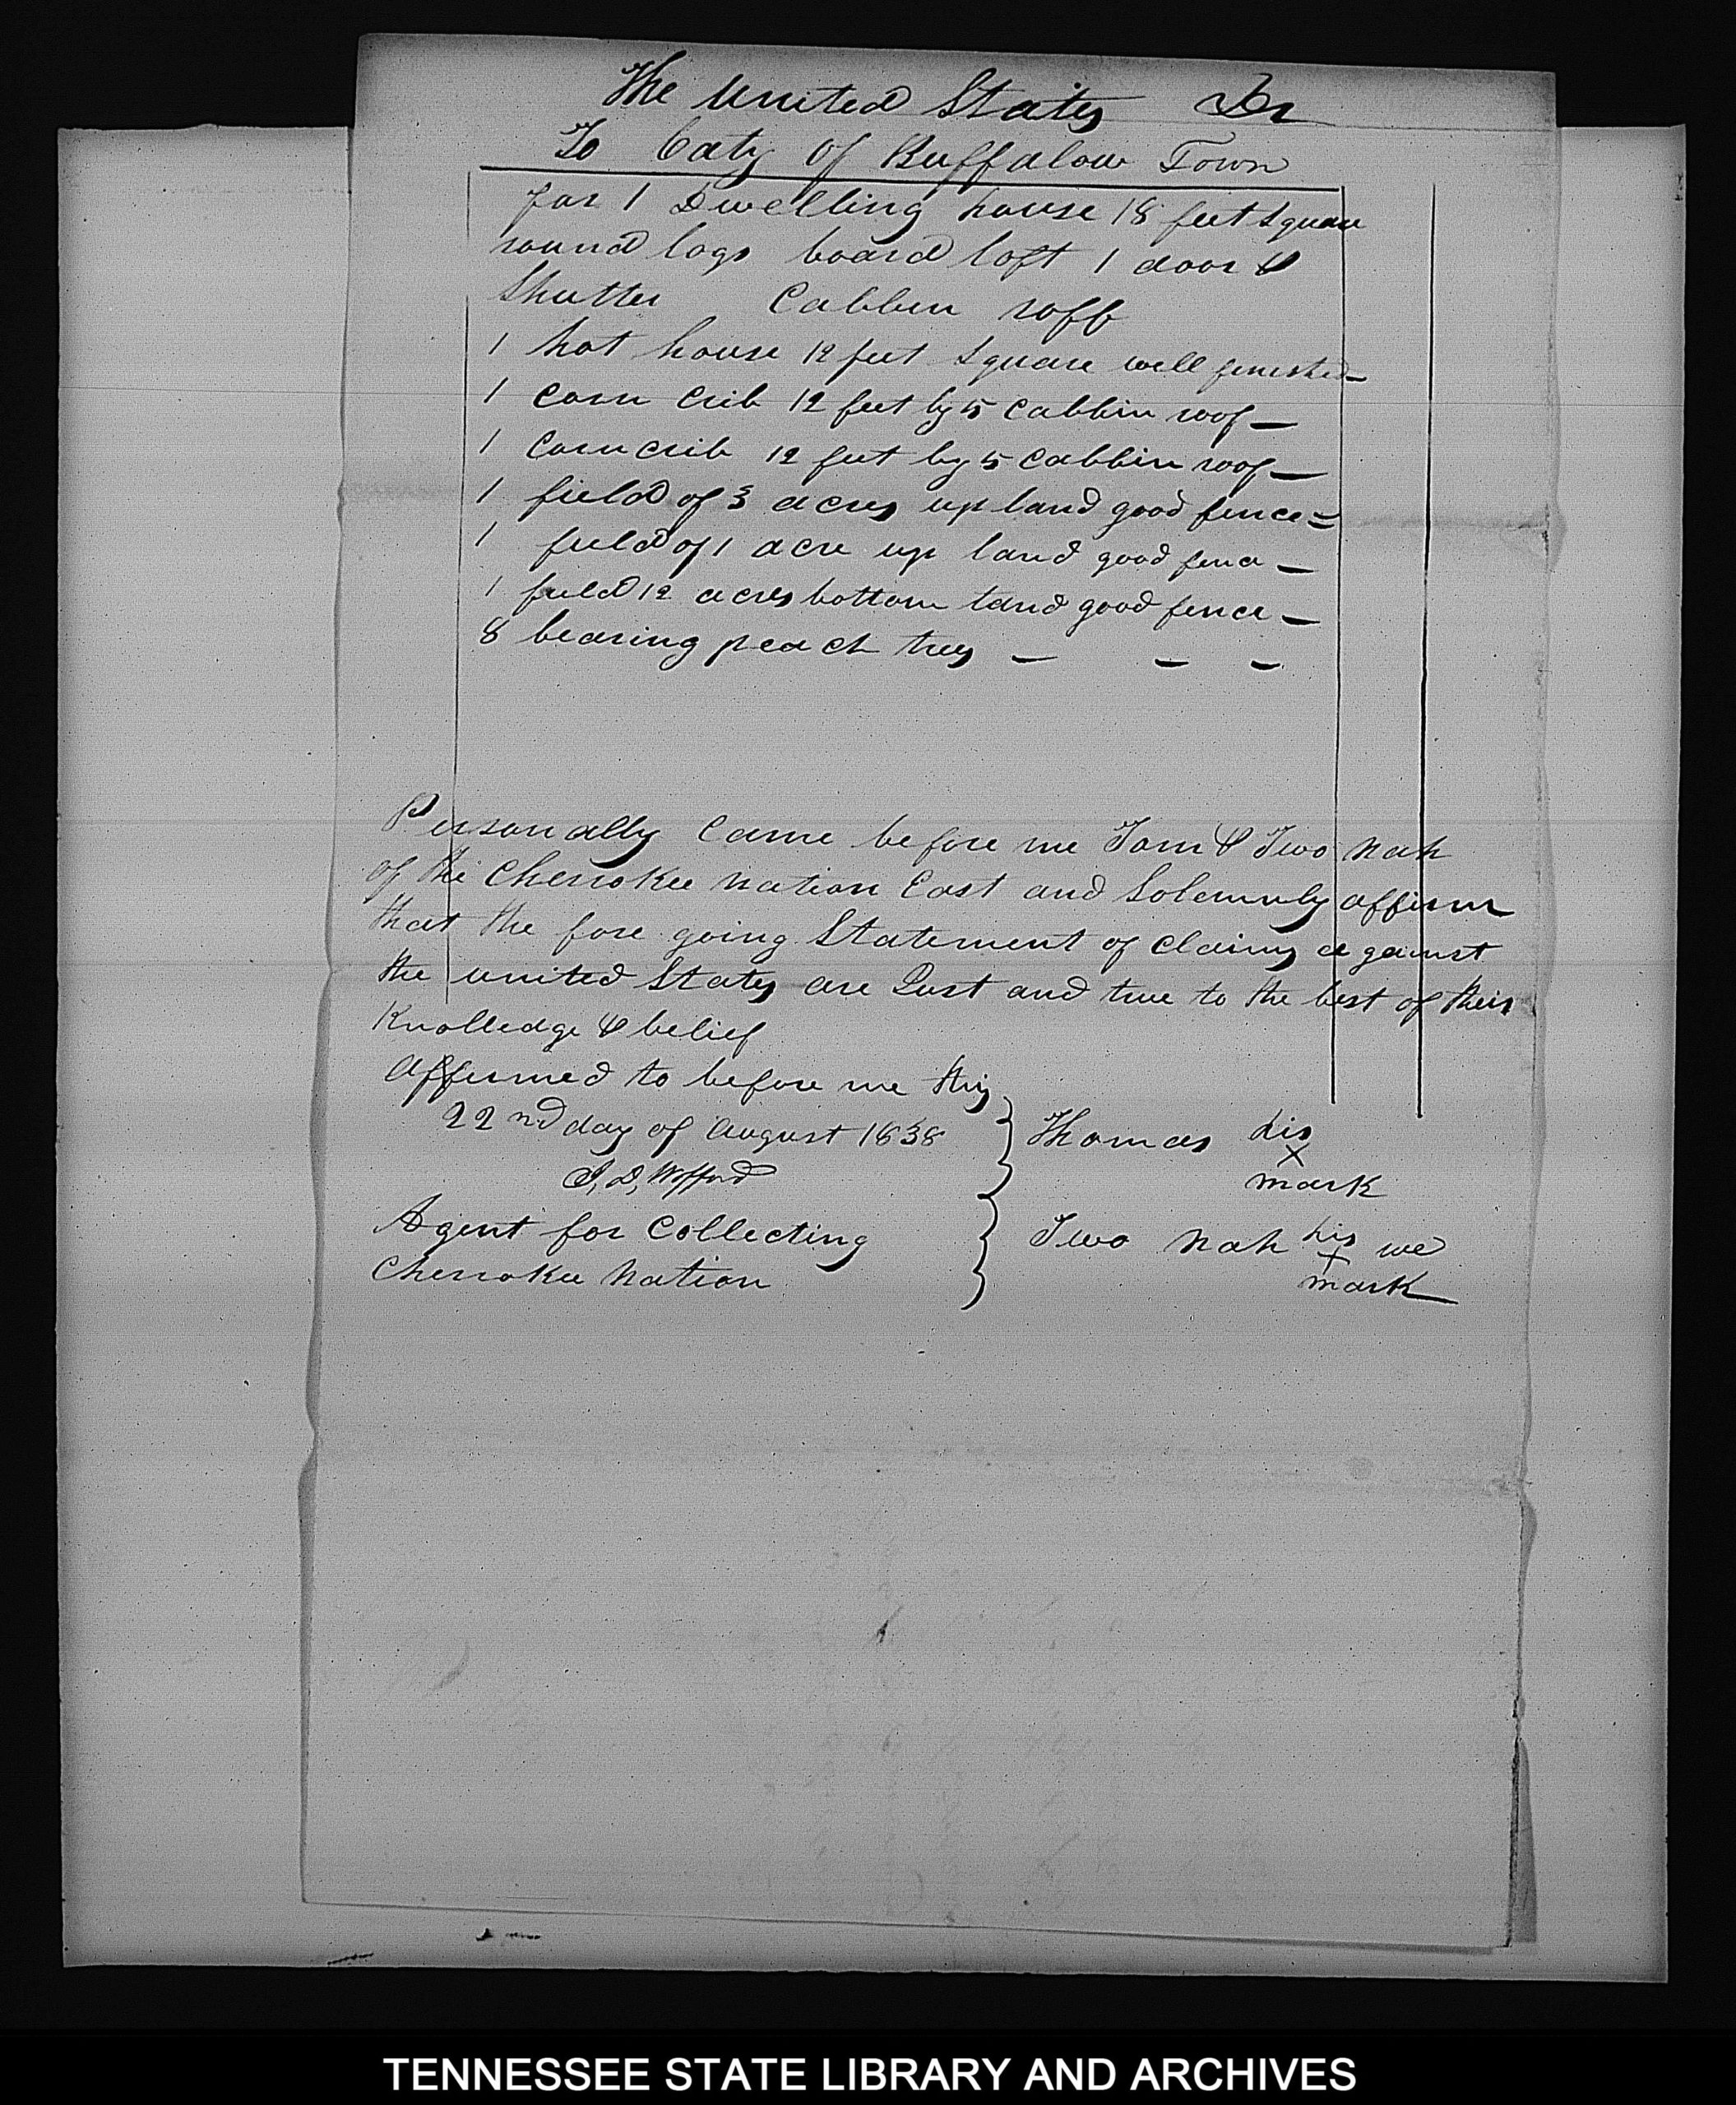 The United States Dr
To Caty of Buffalow Town
for 1 Dwelling house 18 feet Square
round logs board loft 1 door &
Shutter Cabbin roff
1 hot house 12 feet Square well finished
1 Corn Crib 12 feet by 5 Cabbin roof
1 Corn crib 12 feet by 5 Cabbin roof
1 field of 3 acres up land good fence
1 field of 1 acre up land good fence
1 field 12 acres bottom land good fence
8 bearing peach trees
Personally Came before me Tom & Two nah
of the Cherrokee Nation East and Solemnly affirm
that the fore going Statement of Claims against
the united States are Just and true to the best of their
Knolledge & belief
Affirmed to before me this
22nd day of August 1838
J, D, Wofford
Agent for Collecting
Cherrokee Nation
Thomas his
X
mark
Two nah his we
X
mark
TENNESSEE STATE LIBRARY AND ARCHIVES